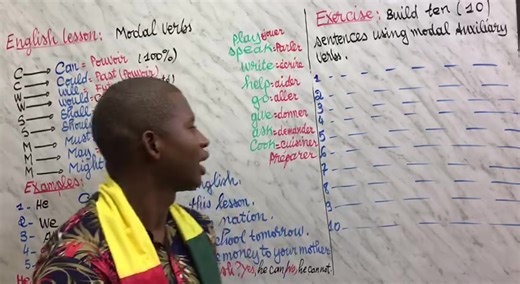 English lesson: Modal verbs
C → Can = Pouvoir (100%)
C → Could = Past (Pouvoir)
W → will =
W → would =
S → Shall
S → Should
M → Must
M → May
M → Might
Examples:
1- He
English.
2- We
this lesson.
3-
nation.
4-
school tomorrow.
5-
money to your mother
He
? Yes, he can/No, he cannot.
Play=Jouer
speak=Parler
write=écrire
help=aider
go=aller
give=donner
ask=demander
Cook=cuisiner
Preparer
Exercise: Build ten (10)
sentences using modal Auxiliary
Verbs.
1-
2-
3-
5-
6-
9-
10-